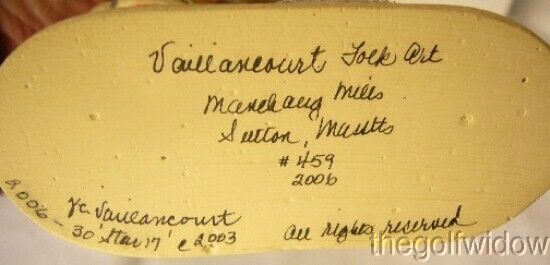 Vaillancourt Folk Art
Manchaug Mills
Sutton, Masstts
#459
2006
2006 -
Jc. Vaillancourt
30 'Star 17' c 2003
All rights reserved
thegolfwidow